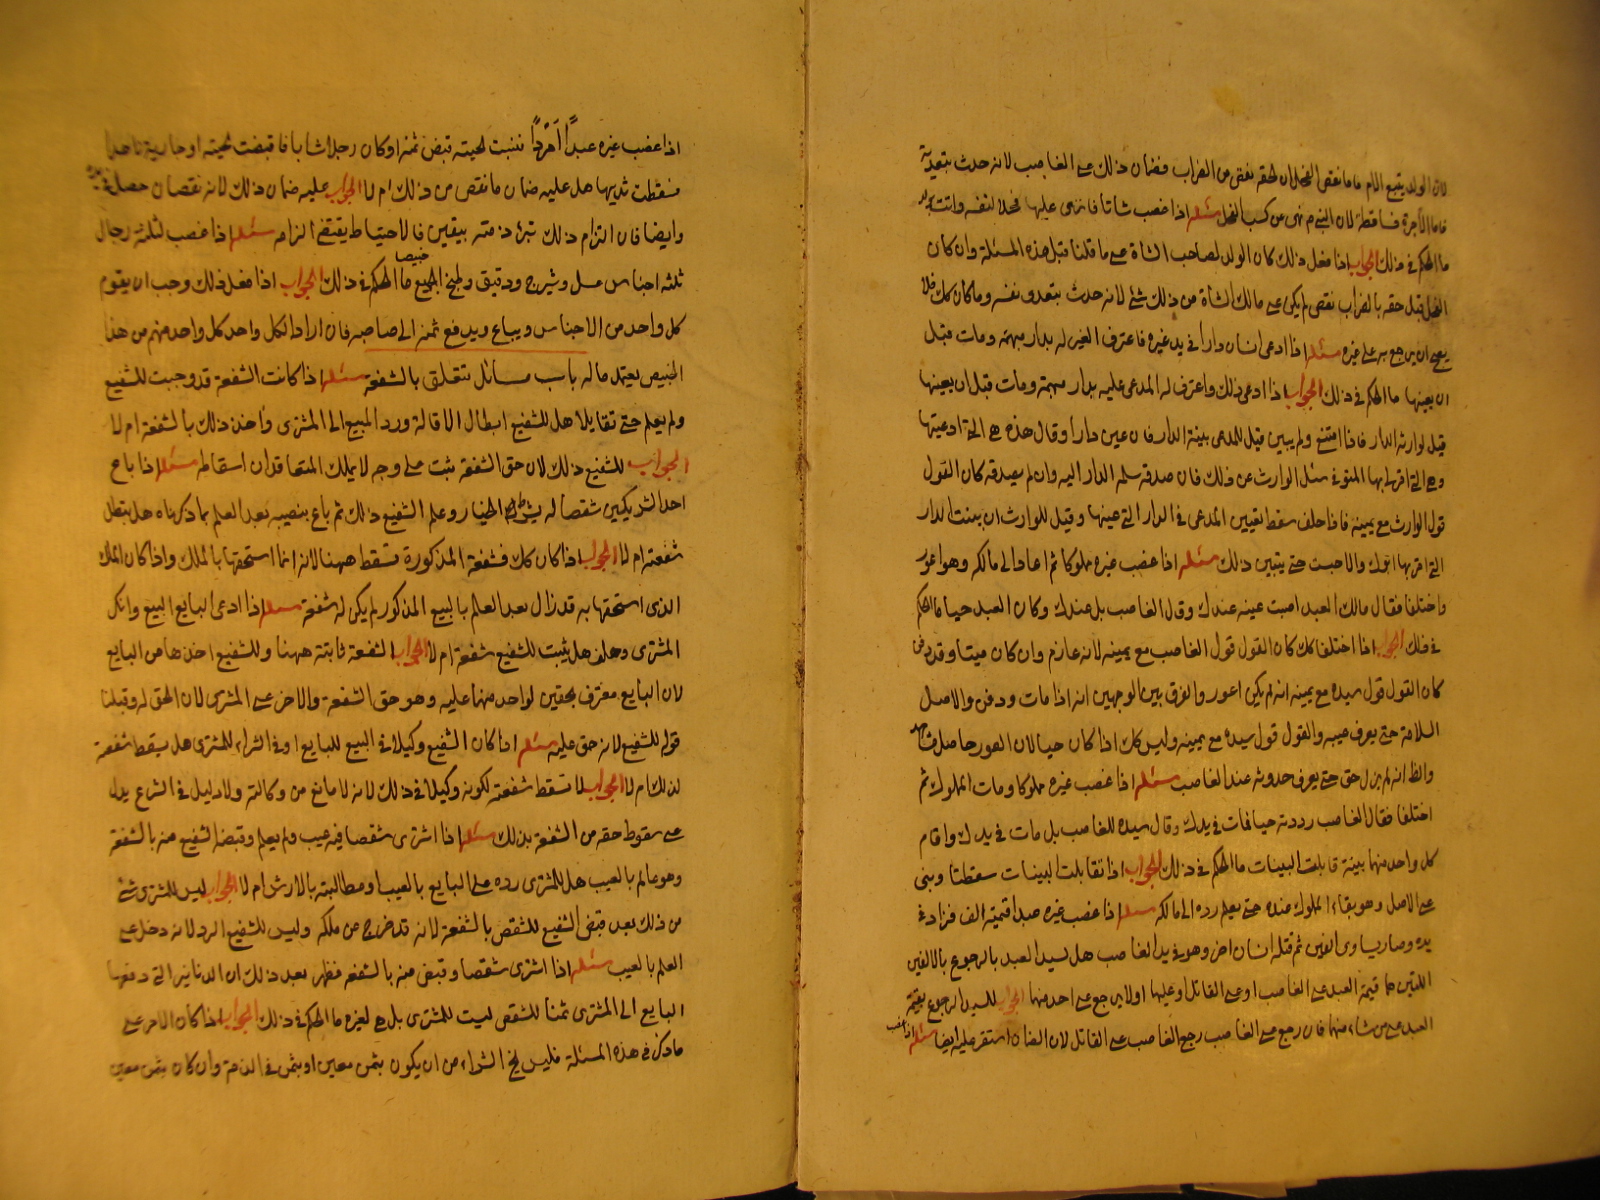 لان الولد يتبع الام فاما نقص الفحل ان لحقه نقص من الضراب فضمان ذلك على الغاصب لانه حدث بتعديه
فاما الاجرة فساقطة لان النبي م نهى عن كسب الفحل مسئله اذا غصب شاتا فانزى عليها فحلا لنفسه واتت بولد
ما الحكم في ذلك الجواب اذا فعل ذلك كان الولد لصاحب الشاة على ما قلنا قبل هذه المسئلة وان كان
الفحل قبل حقه بالضراب نقص لم يكن على مالك الشاة من ذلك شئ لانه حدث بتعدو نفسه وما كان كك فلا
يصح ان يرجع به على غيره مسئله اذا ادعى انسان دارا في يد غيره فاعترف الغير له بدار مبهمة ومات قبل
ان يعينها ما الحكم في ذلك الجواب اذا ادعى ذلك واعترف له المدعى عليه بدار مبهمة ومات قبل ان يعينها
قيل لوارثه الدار فاذا امتنع ولم يبين قيل للمدعى بينة الدار فان عين دارا وقال هذه هي التي ادعيتها
وهي التي اقر لي بها المتوفى سئل الوارث عن ذلك فان صدقه سلم الدار اليه وان لم يصدقه كان القول
قول الوارث مع يمينه فاذا حلف سقط تعيين المدعى في الدار التي عينها وقيل للوارث ان بينت الدار
التي اقر بها ابوك والا حبست حتى يتبين ذلك مسئله اذا غصب غيره مملوكا ثم اعاد الى مالكه وهو اعور
واختلفا فقال مالك العبد اصبت عينه عندك وقال الغاصب بل عندك وكان العبد حيا ما الحكم
في ذلك الجواب اذا اختلفا كك كان القول قول الغاصب مع يمينه لانه غارم وان كان ميتا وقد دفن
كان القول قول سيده مع يمينه انه لم يكن اعور والفرق بين الوجهين انه اذا مات ودفن والاصل
السلامة حتى يعرف عيبه والقول قول سيده مع يمينه وليس كك اذا كان حيا لان العور حاصل مشاهد
والظ انه لم يزل حق حتى يعرف حدوثه عند الغاصب مسئله اذا غصب غيره مملوكا ومات المملوك ثم
اختلفا فقال الغاصب رددته حيا فمات في يدك وقال سيده للغاصب بل مات في يدك واقام
كل واحد منهما بينة قابلت البينات ما الحكم في ذلك الجواب اذا تقابلت البينات سقطتا وبنى
على الاصل وهو بقاء المملوك عنده حتى يعلم رده الى مالكه مسئله اذا غصب غيره عبدا قيمته الف فزاد في
يده وصار يساوى الفين ثم قتله انسان اخر وهو في يد الغاصب هل لسيد العبد بالرجوع بالالفين
اللتين هما قيمة العبد على الغاصب او على القاتل او عليهما او لا يرجع على احد منهما الجواب للسيد الرجوع بقيمة
العبد على من شاء منهما فان رجع على الغاصب رجع الغاصب على القاتل لان الضمان استقر عليه ايضا مسئله اذا غصب
اذا غصب غيره عبدا امردا فنبتت لحيته فنقص ثمنه او كان رجلا شابا فابيضت لحيته او جارية ناهدا
فسقطت ثديها هل عليه ضمان ما نقص من ذلك ام لا الجواب عليه ضمان ذلك لانه نقصان حصل في يده
وايضا فان التزام ذلك تبرئ ذمته بيقين فالاحتياط يقتضي الزامه مسئله اذا غصب لثلثة رجال
ثلثه اجناس عسل وشيرج ودقيق وطبخ الجميع خبيصا ما الحكم في ذلك الجواب اذا فعل ذلك وجب ان يقوم
كل واحد من الاجناس ويباع ويدفع ثمنه الى صاحبه فان اراد الكل واحد كل واحد منهم من هذا
الخبيص بعد ماله باب مسائل تتعلق بالشفعة مسئله اذا كانت الشفعة قد وجبت للشفيع
ولم يعلم حتى تقايلا هل للشفيع ابطال الاقالة ورد المبيع الى المشترى واخذ ذلك بالشفعة ام لا
الجواب للشفيع ذلك لان حق الشفعة ثبت على وجه لا يملك المتعاقدان اسقاطه مسئله اذا باع
احد الشريكين شقصا له بشرط الخيار وعلم الشفيع ذلك ثم باع بنصيبه بعد العلم بما ذكرناه هل بتطل
شفعته ام لا الجواب اذا كان كك فشفعة المذكورة تسقط ههنا لانه انما استحقها بالملك واذا كان الملك
الذى استحقها به قد زال بعد العلم بالبيع المذكور لم يكن له شفعة مسئله اذا ادعى البايع البيع وانكر
المشترى وحلف هل يثبت للشفيع شفعة ام لا الجواب الشفعة ثابتة ههنا وللشفيع اخذها من البايع
لان البايع معترف بحقين لواحد منهما عليه وهو حق الشفعة والاخر على المشترى لان الحق له وقبلنا
قوله للشفيع لانه حق عليه مسئله اذا كان الشفيع وكيلا في البيع للبايع او في الشراء للمشترى هل يسقط شفعته
لذلك ام لا الجواب لا تسقط شفعته لكونه وكيلا في ذلك لانه لا مانع من وكالته ولا دليل في الشرع يدل
على سقوط حقه من الشفعة بذلك مسئله اذا اشترى شقصا فيه عيب ولم يعلم وقبضه الشفيع منه بالشفعة
وهو عالم بالعيب هل للمشترى رده على البايع بالعيب او مطالبته بالارش ام لا الجواب ليس للمشترى شئ
من ذلك بعد قبض الشفيع للشقص بالشفعة لانه قد خرج من ملكه وليس للشفيع الرد لانه دخل على
العلم بالعيب مسئله اذا اشترى شقصا وقبض منه بالشفعه فظهر بعد ذلك ان الدنانير التي دفعها
البايع الى المشترى ثمنا للشقص ليست للمشترى بل هي لغيره ما الحكم في ذلك الجواب اذا كان الامر على
ما ذكر في هذه المسئلة فليس يخ الشراء من ان يكون بثمن معين او بثمن في الذمة وان كان بثمن معين